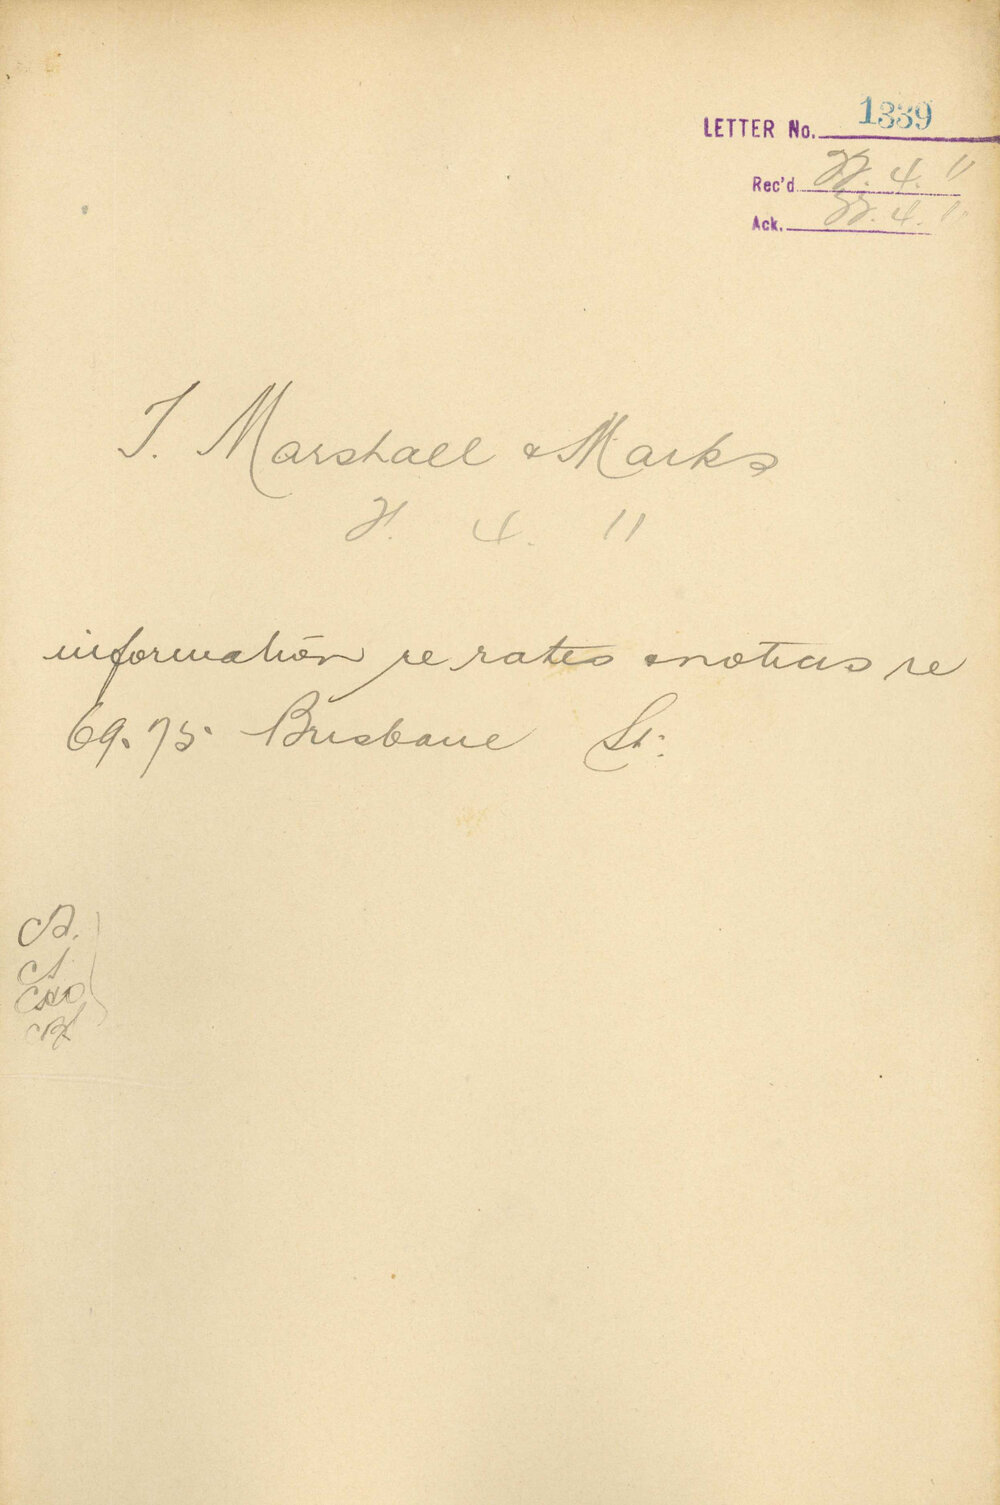 LETTER No. 1339
Rec'd 22. 4. 11
Ack. 22. 4. 11
T. Marshall & Marks
21. 4. 11
information re rates & notices re
69. 75. Brisbane St.